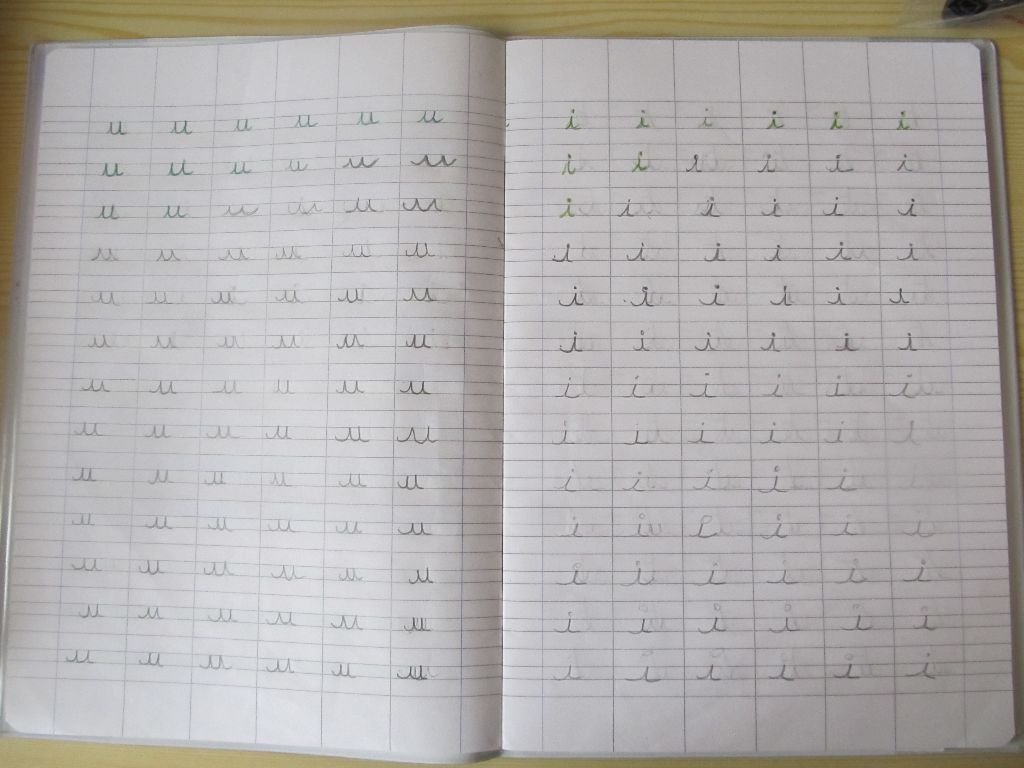 u u u u u u
u u u u u u
u u u u u u
u u u u u u
u u u u u u
u u u u u u
u u u u u u
u u u u u u
u u u u u u
u u u u u u
u u u u u u
u u u u u u
u u u u u u
i i i i i i
i i i i i i
i i i i i i
i i i i i i
i i i i i i
i i i i i i
i i i i i i
i i i i i i
i i i i i
i i i i i i
i i i i i i
i i i i i i
i i i i i i